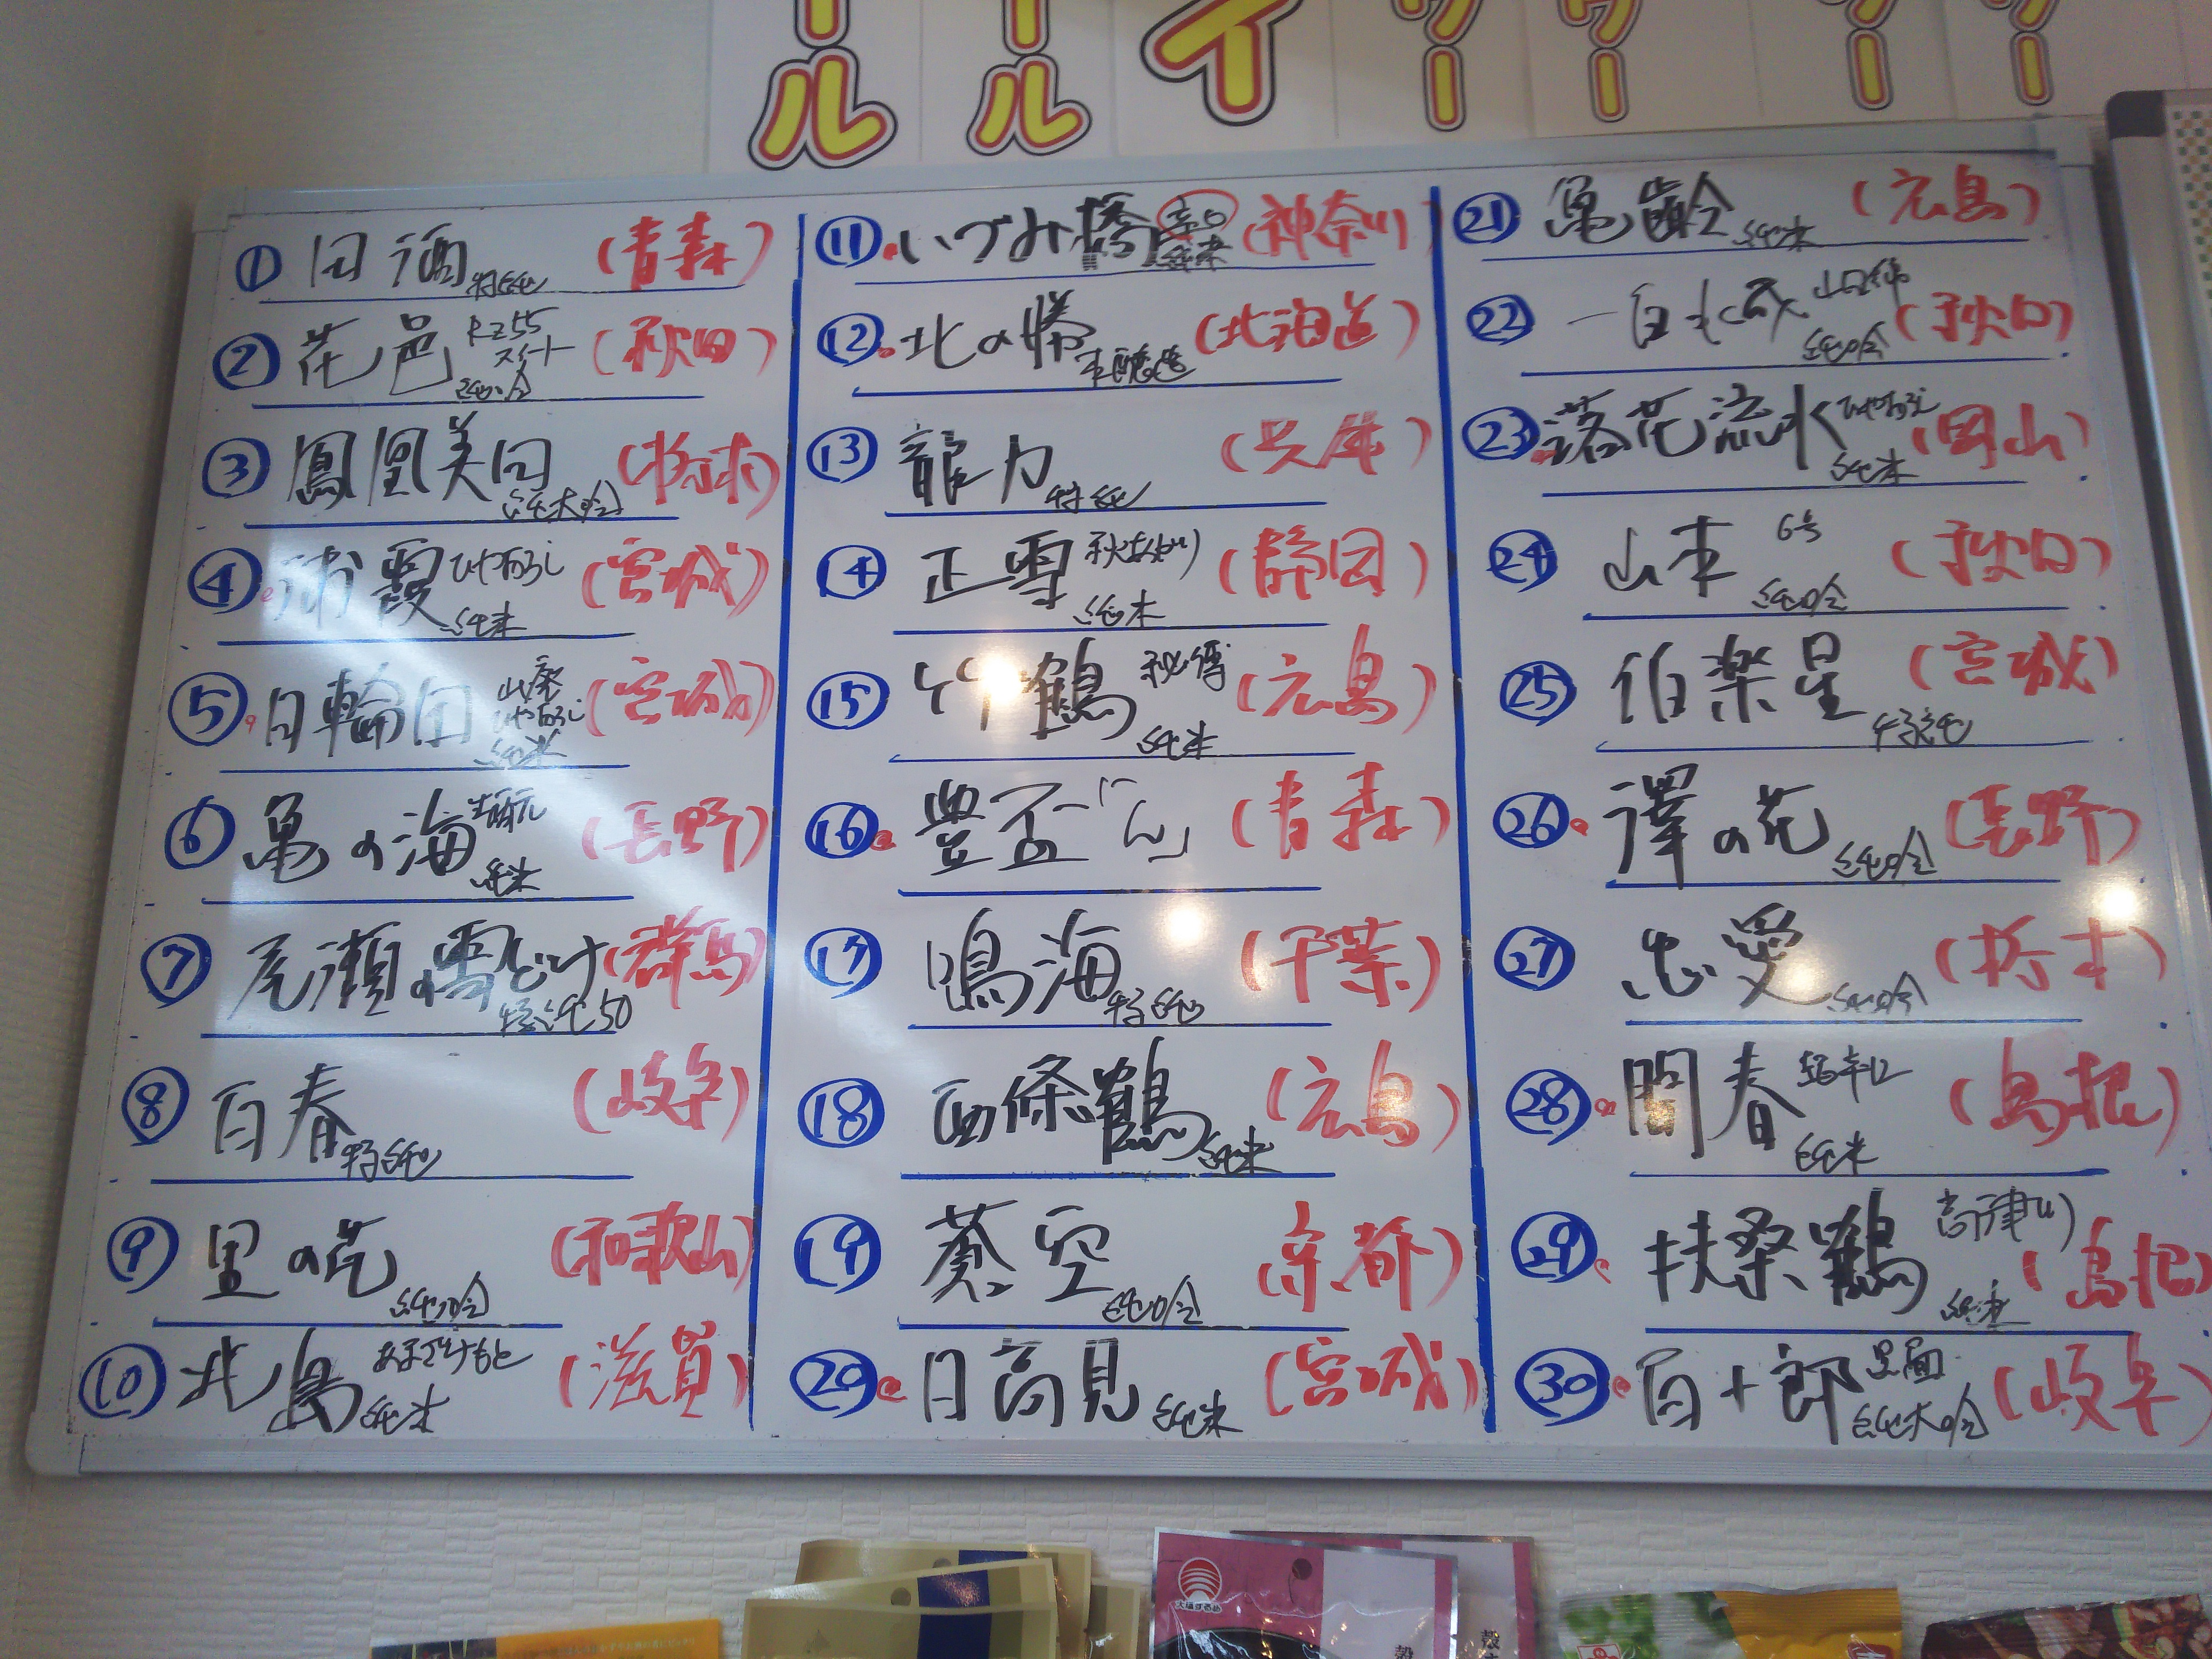 ール
ール
イ
ワー
ワー
ワー
ワー
① 田酒 特純 (青森)
② 花邑 RZ55 スイート 純吟 (秋田)
③ 鳳凰美田 純大吟 (栃木)
④ 浦霞 ひやおろし 純米 (宮城)
⑤ 日輪田 山廃 ひやおろし 純米 (宮城)
⑥ 亀の海 純米 (長野)
⑦ 尾瀬の雪どけ 特純50 (群馬)
⑧ 百春 特純 (岐阜)
⑨ 里の花 純吟 (和歌山)
⑩ 北島 純米 (滋賀)
⑪ いづみ橋 辛口 純米 (神奈川)
⑫ 北の勝 本醸造 (北海道)
⑬ 龍力 特純 (兵庫)
⑭ 正雪 秋あがり 純米 (静岡)
⑮ 竹鶴 秘傳 純米 (広島)
⑯ 豊盃「ん」 (青森)
⑰ 鳴海 特純 (千葉)
⑱ 西條鶴 純米 (広島)
⑲ 蒼空 純吟 (京都)
⑳ 日高見 純米 (宮城)
㉑ 亀齢 純米 (広島)
㉒ 一白水成 純吟 (秋田)
㉓ 落花流水 ひやおろし 純米 (岡山)
㉔ 山本 6号 純吟 (秋田)
㉕ 伯楽星 特純 (宮城)
㉖ 澤の花 純吟 (長野)
㉗ 忠愛 純吟 (栃木)
㉘ 開春 超辛口 純米 (島根)
㉙ 扶桑鶴 高津川 純米 (島根)
㉚ 百十郎 黒面 純大吟 (岐阜)